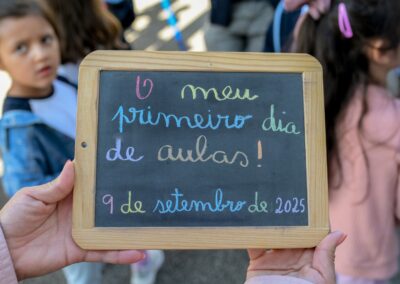 O meu
primeiro dia
de aulas!
9 de setembro de 2025